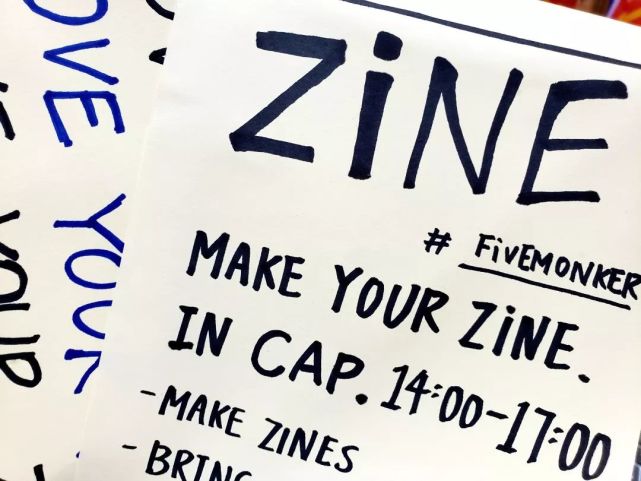 ZiNE
# FiVEMONKER
MAKE YOUR ZiNE.
IN CAP. 14:00-17:00
- MAKE ZINES
- BRING
OVE YOUR
YOUR